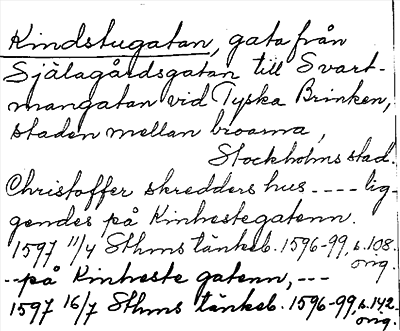 Kindstugatan, gata från
Själagårdsgatan till Svart-
mangatan vid Tyska Brinken,
staden mellan broarna,
Stockholms stad.
Christoffer skredders hus ---- lig-
gendes på Kinhestegatenn.
1597 11/4 Sthms tänkeb. 1596-99, s. 108.
orig.
--på Kinheste gatenn, ---
1597 16/7 Sthms tänkeb. 1596-99, s. 142.
orig.